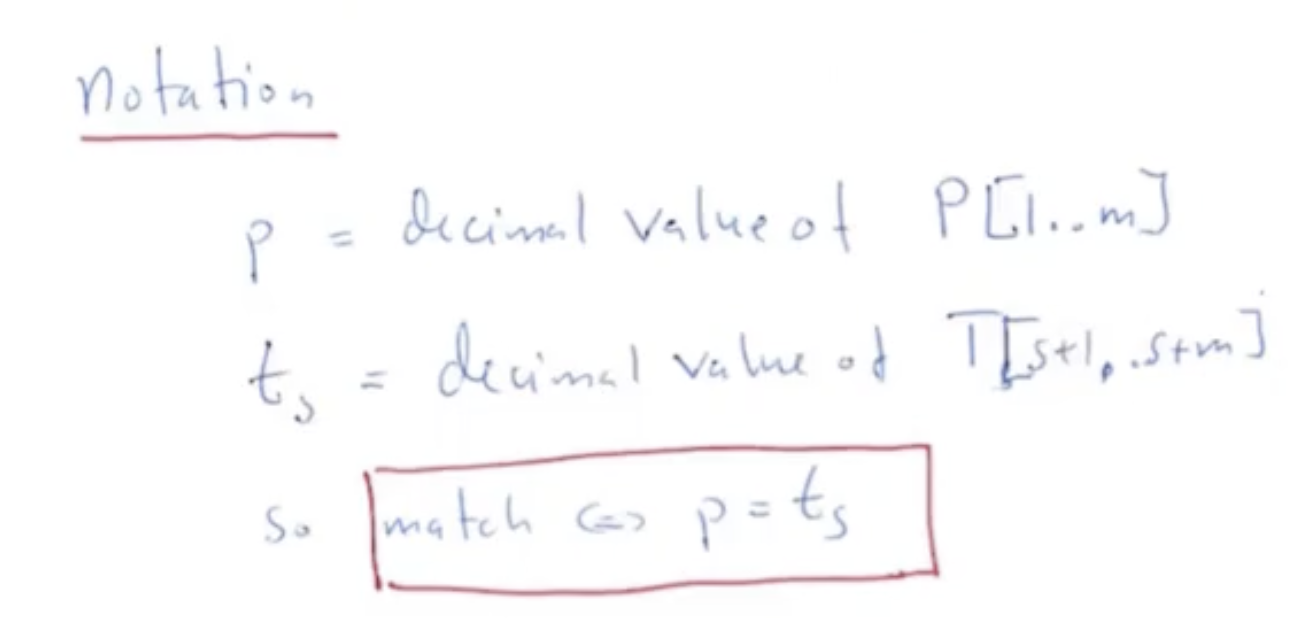 Notation
p = decimal value of P[1..m]
t_s = decimal value of T[s+1..s+m]
so match <=> p = t_s